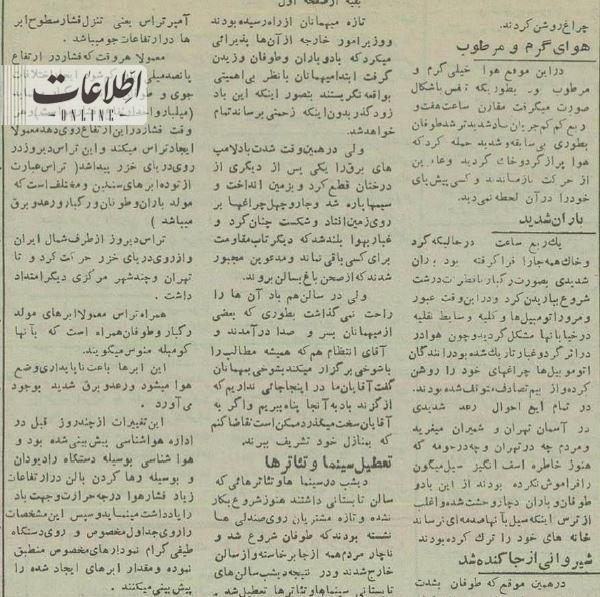 چراغ روشن کردند.
هوای گرم و مرطوب
در این موقع هوا خیلی گرم و
مرطوب بود بطوریکه تنفس باشکال
صورت میگرفت مقارن ساعت هفت و
ربع کم کم جریان باد شدیدتر شد طوفان
بطوری بی‌سابقه و شدید حمله کرد که
هوا پر از گرد و خاک گردید و عابرین
از حرکت بازماندند و کسی پیش پای
خود را در آن لحظه نمی‌دید.
باران شدید
یک ربع ساعت در حالیکه گرد
و خاک همه جا را فرا گرفته بود باران
شدیدی بصورت رگبار با قطرات درشت
شروع بباریدن کرد و در این وقت عبور
و مرور اتومبیل‌ها و کلیه وسایط نقلیه
در خیابانها مشکل گردید و چون هوا در
اثر گرد و غبار تاریک شده بود رانندگان
اتومبیل‌ها چراغهای خود را روشن
کرده و از بیم تصادف متوقف شده بودند.
در تمام این احوال رعد شدیدی
در آسمان تهران و شمیران میغرید
و مردم چه در تهران و چه در حومه که
هنوز خاطره اسف انگیز سیل میگون
را فراموش نکرده بودند از این باد و
طوفان و باران دچار وحشت شده و اغلب
از ترس اینکه سیل بآنها صدمه‌ای نرساند
خانه های خود را ترک کرده بودند
شیروانی از جا کنده شد
در همین موقع که طوفان بشدت
بقیه از صفحه اول
تازه میهمانان از راه رسیده بودند
و وزیر امور خارجه از آن‌ها پذیرائی
میکرد که باد و باران و طوفان وزیدن
گرفت ابتدا میهمانان با نظر بی‌اهمیتی
بواقعه نگریستند بتصور اینکه این باد
زود گذر بدون اینکه زحمتی برساند تمام
خواهد شد.
ولی در همین وقت شدت باد لامپ
های برق را یکی پس از دیگری از
درختان قطع کرد و بزمین انداخت و
سیمها پاره شد و جار و چهل چراغها بر
روی زمین افتاد و شکست چنان گرد و
غباری بهوا بلند شد که دیگر تاب مقاومت
برای کسی باقی نماند و مدعوین مجبور
شدند که از صحن باغ بسالن بروند.
ولی در سالن هم باد آن ها را
راحت نمی‌گذاشت بطوری که بعضی
از میهمانان بسر و صدا درآمدند و
آقای انتظام هم که همیشه مطالب را
با شوخی برگزار میکند بشوخی بمهمانان
گفت آقایان ما در اینجا جائی نداریم که
از گزند باد به آنجا پناه ببریم واگر به
آقایان سخت میگذرد ممکن است تقاضا کنم
که بمنازل خود تشریف ببرند
تعطیل سینما و تئاترها
دیشب در سینما ها و تئاترهائی که
سالن تابستانی داشتند هنوز شروع بکار
نشده و تازه مشتریان روی صندلی ها
نشسته بودند که طوفان شروع شد و
ناچار مردم همه از جا برخاسته و از سالن
خارج شدند و در نتیجه دیشب سالن‌های
تابستانی سینماها و تئاترها تعطیل شد.
آمپر تراس یعنی تنزل فشار سطوح ابر
ها در ارتفاعات جو میباشد.
معمولا هر وقت که فشار در ارتفاع
پانصد
جوی و
(میلیبار
وقت فشار در این ارتفاع روی دهد معمولا
ایجاد تراس میکند و این تراس دیروز در
روی دریای خزر پیدا شد (تراس عبارت
از توده ابرهای سنگین و مختلف است که
مولد باران و طوفان و رگبار و رعد و برق
میباشد)
تراس دیروز از طرف شمال ایران
و از روی دریای خزر حرکت کرد و تا
تهران و چند شهر مرکزی دیگر امتداد
داشت.
همراه تراس معمولا ابرهای مولد
رگبار و طوفان همراه است که بآنها
کومبله منوس میگویند.
این ابرها باعث ناپایداری وضع
هوا میشود و رعد و برق شدید بوجود
می‌آورد.
این تغییرات از چند روز قبل در
اداره هواشناسی پیش‌بینی شده بود و
هوا شناسی بوسیله دستگاه رادیو بادان
و بوسیله رها کردن بالن در ارتفاعات
زیاد فشار هوا درجه حرارت و جهت باد
را یادداشت مینماید و سپس این مشخصات
را روی جداول مخصوص و روی دستگاه
طیفی گرام نمودارهای مخصوص منطبق
نموده و مقدار ابرهای ایجاد شده را
پیش‌بینی میکنند.
اطلاعات
ONLINE